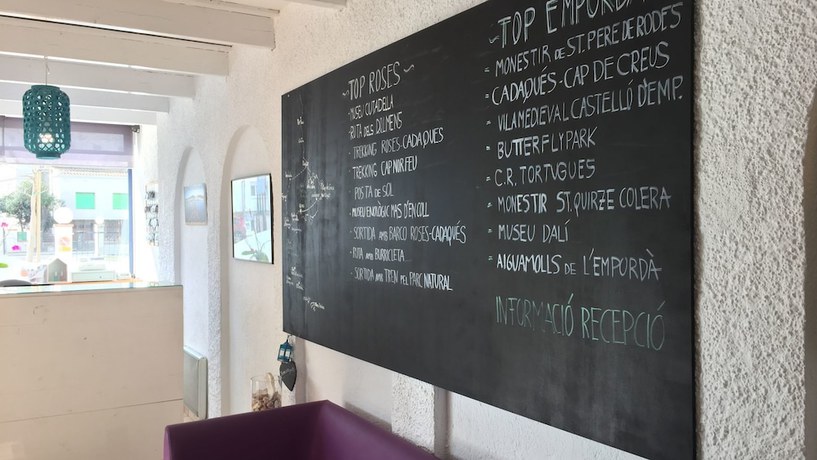 ~TOP ROSES~
- MUSEU CIUTADELLA
- RUTA DELS DÒLMENS
- TREKKING ROSES-CADAQUES
- TREKKING CAP NORFEU
POSTA DE SOL
- MUSEU ENOLÒGIC MAS D'EN COLL
- SORTIDA AMB BARCO ROSES-CADAQUÉS
- RUTA AMB BURRICLETA
- SORTIDA AMB TREN PEL PARC NATURAL
~TOP EMPORDÀ
= MONESTIR DE ST. PERE DE RODES
= CADAQUÉS-CAP DE CREUS
= VILA MEDIEVAL CASTELLÓ D'EMP.
= BUTTERFLY PARK
= C.R. TORTUGUES
= MONESTIR ST. QUIRZE COLERA
= MUSEU DALÍ
= AIGUAMOLLS DE L'EMPORDÀ
INFORMACIÓ RECEPCIÓ